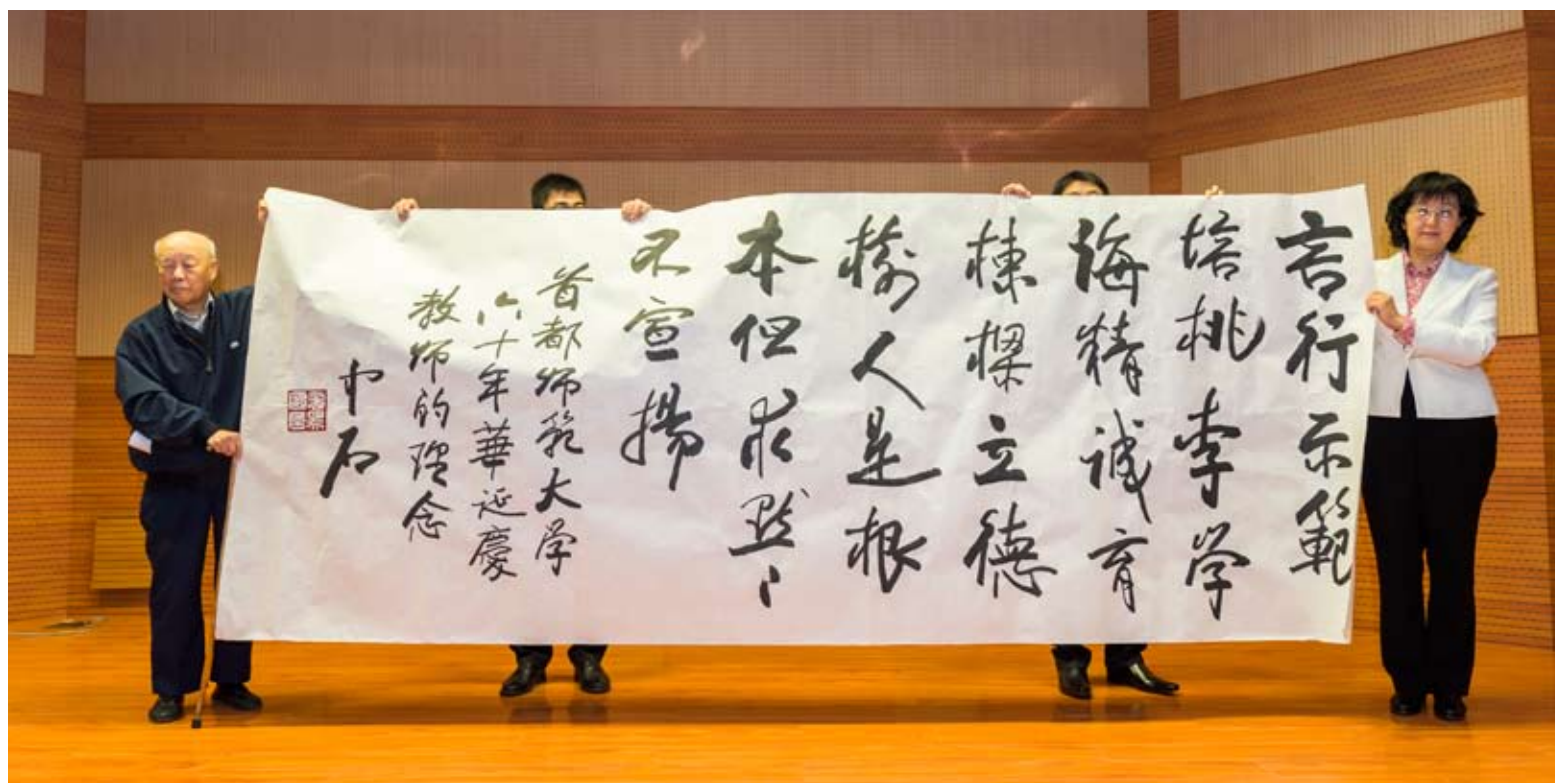 言行示範
培桃李学
海精诚育
棟樑立德
樹人是根
本但求默〻
不宣揚
首都师范大学
六十年華延慶
教师的理念
中石